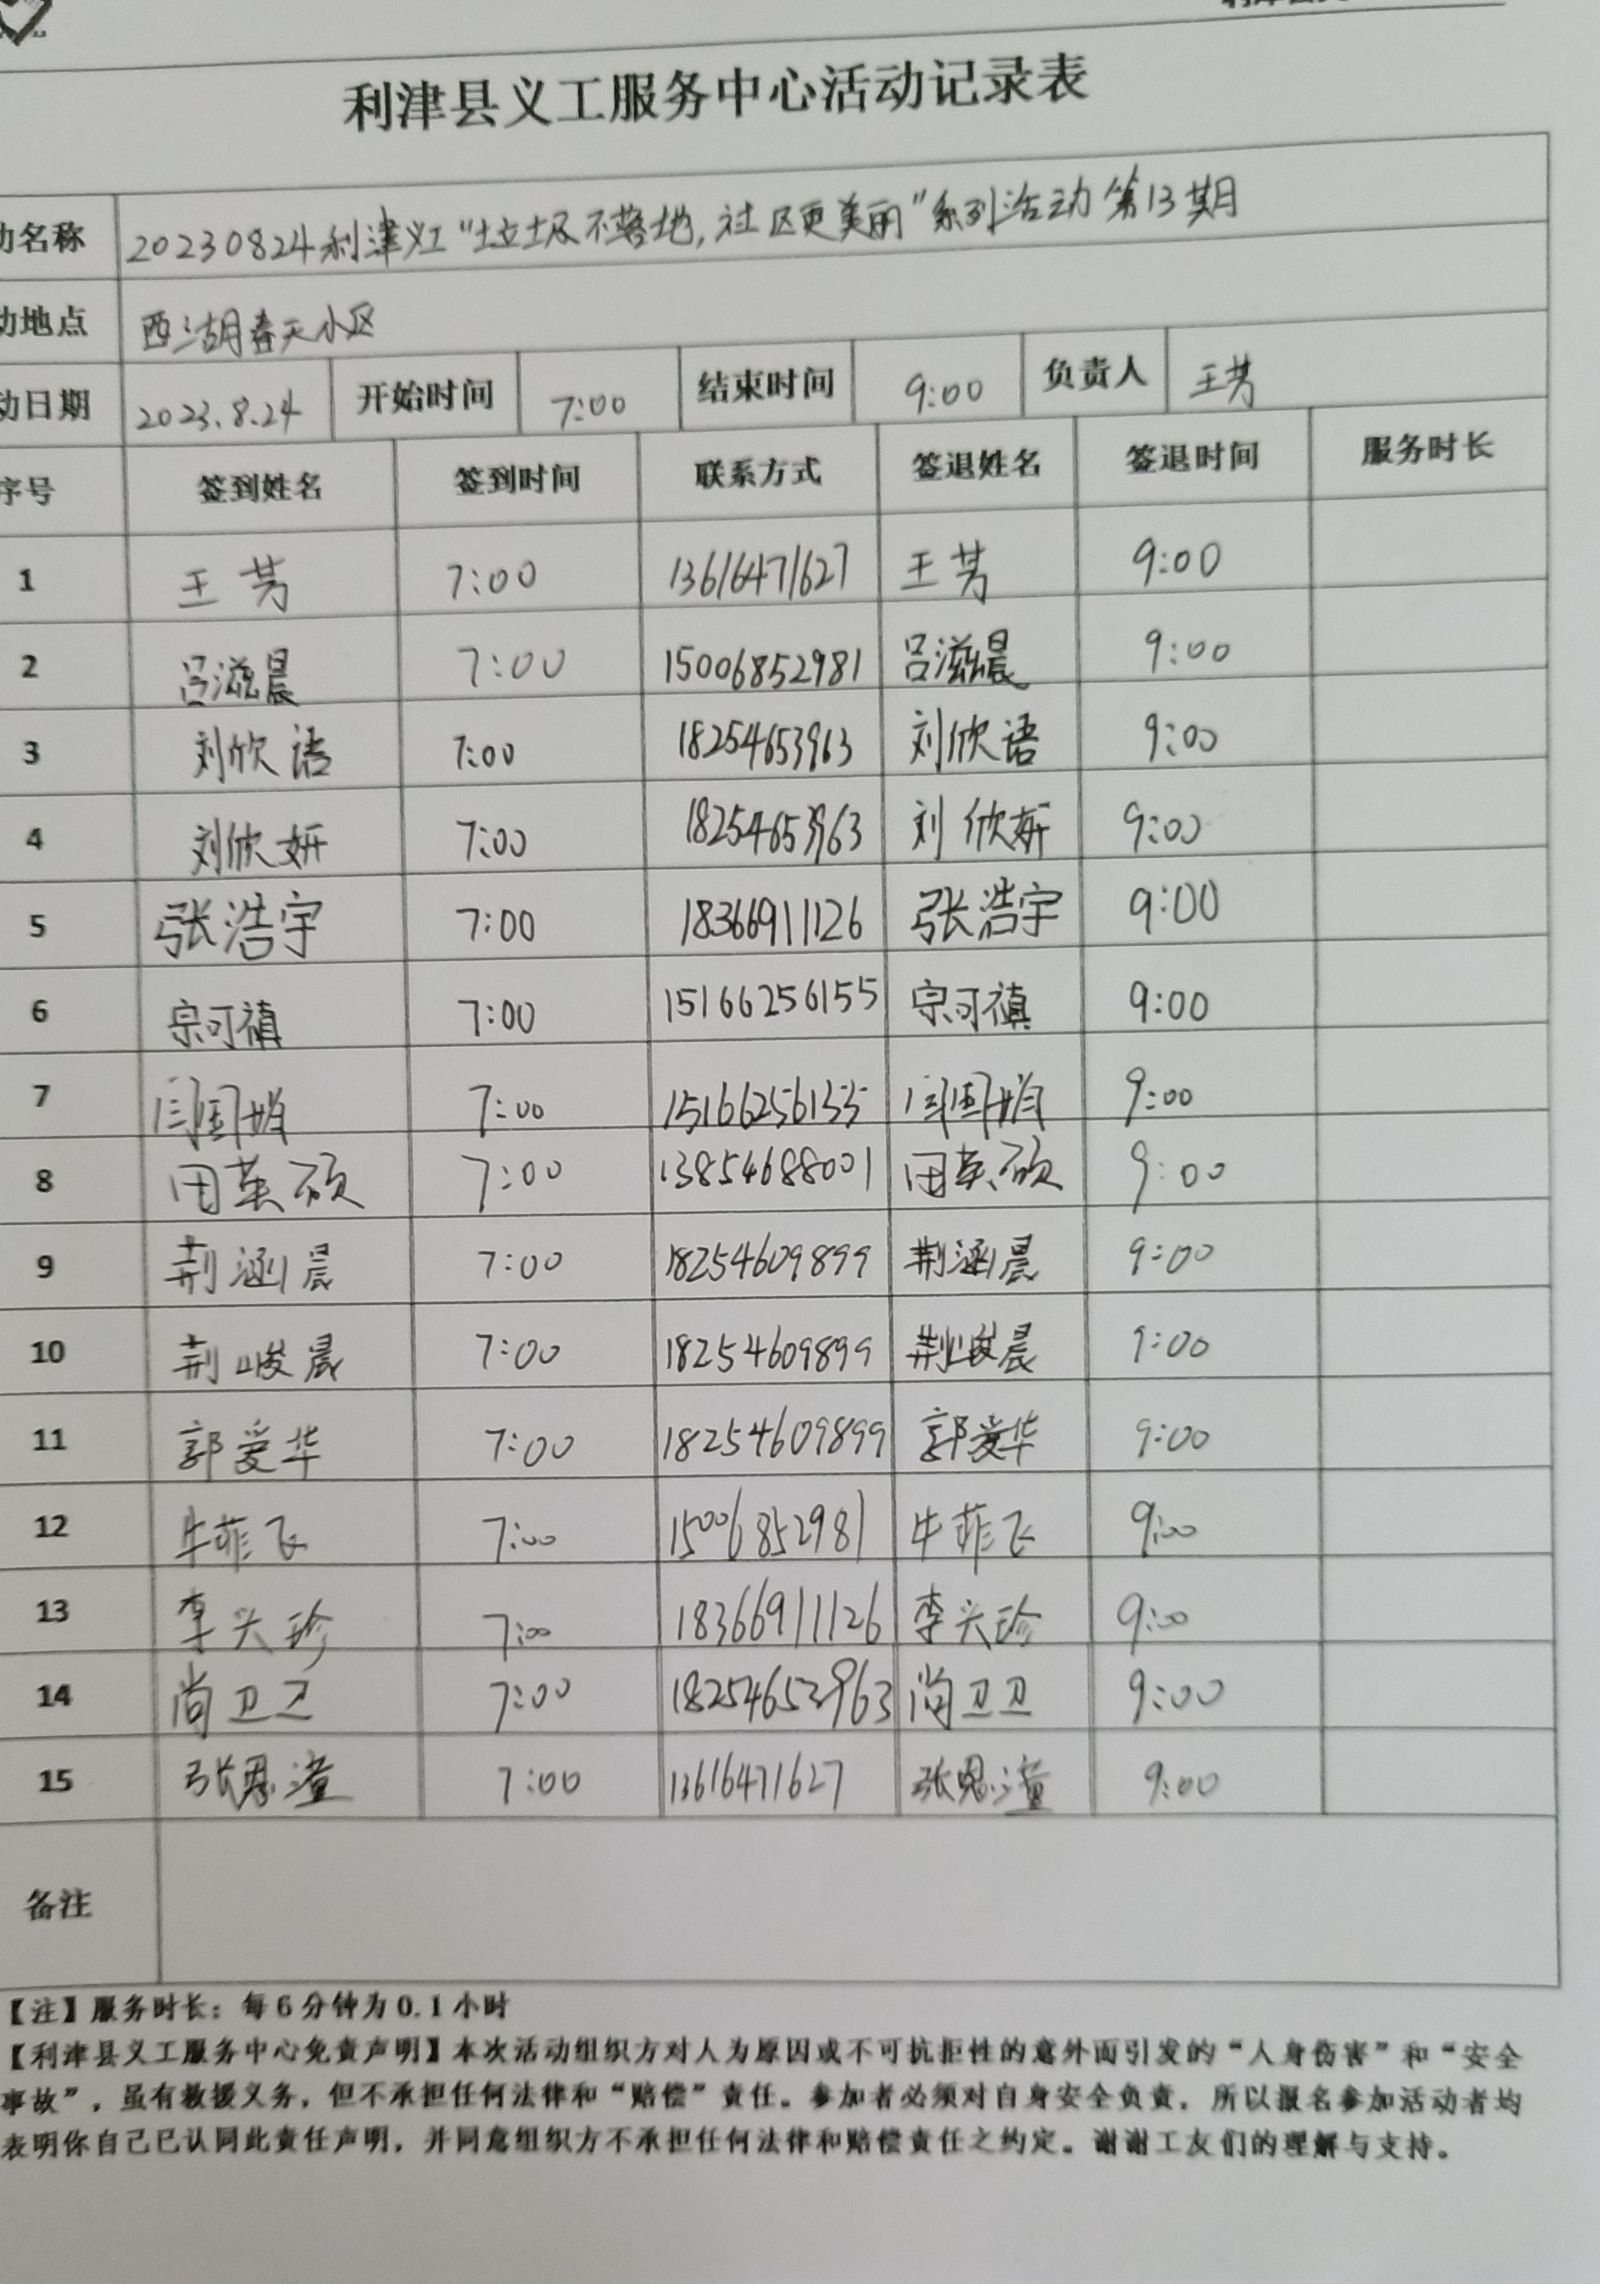 利津县义工服务中心活动记录表
动名称 20230824利津义工“垃圾不落地,社区更美丽”系列活动第13期
动地点 西湖春天小区
动日期 2023.8.24 开始时间 7:00 结束时间 9:00 负责人 王芳
序号 签到姓名 签到时间 联系方式 签退姓名 签退时间 服务时长
1 王芳 7:00 13616471627 王芳 9:00
2 吕滋晨 7:00 15006852981 吕滋晨 9:00
3 刘欣语 7:00 18254653963 刘欣语 9:00
4 刘欣妍 7:00 18254653963 刘欣妍 9:00
5 张浩宇 7:00 18366911126 张浩宇 9:00
6 宗可禛 7:00 15166256155 宗可禛 9:00
7 闫国娟 7:00 15166256155 闫国娟 9:00
8 田英硕 7:00 13854688001 田英硕 9:00
9 荆涵晨 7:00 18254609899 荆涵晨 9:00
10 荆峻晨 7:00 18254609899 荆峻晨 9:00
11 郭爱华 7:00 18254609899 郭爱华 9:00
12 牛菲飞 7:00 15006852981 牛菲飞 9:00
13 李兴珍 7:00 18366911126 李兴珍 9:00
14 尚卫卫 7:00 18254653963 尚卫卫 9:00
15 张恩潼 7:00 13616471627 张恩潼 9:00
备注
【注】服务时长：每6分钟为0.1小时
【利津县义工服务中心免责声明】本次活动组织方对人为原因或不可抗拒性的意外而引发的“人身伤害”和“安全
事故”，虽有救援义务，但不承担任何法律和“赔偿”责任。参加者必须对自身安全负责，所以报名参加活动者均
表明你自己已认同此责任声明，并同意组织方不承担任何法律和赔偿责任之约定。谢谢工友们的理解与支持。